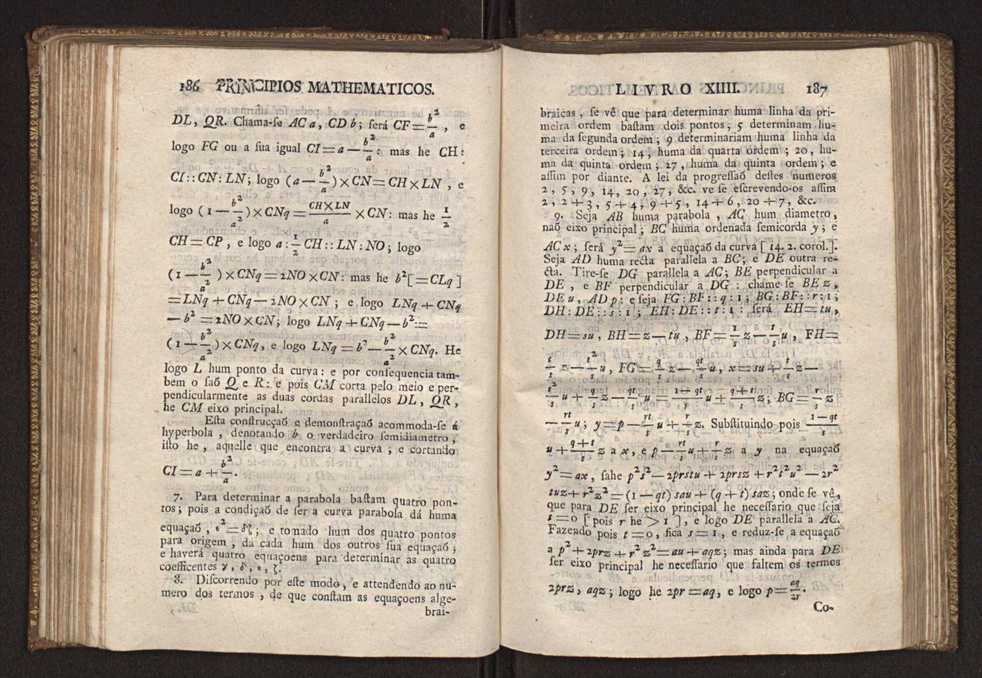 186 PRINCIPIOS MATHEMATICOS.
DL, QR. Chama-se AC a, CD b; será CF = b²/a, e
logo FG ou a sua igual CI = a — b²/a: mas he CH:
CI :: CN: LN; logo (a — b²/a) × CN = CH × LN, e
logo (1 — b²/a²) × CNq = CH × LN/a × CN: mas he 1/2
CH = CP, e logo a: 1/2 CH :: LN: NO; logo
(1 — b²/a²) × CNq = 2NO × CN: mas he b² [= CLq]
= LNq + CNq — 2NO × CN; e logo LNq + CNq
— b² = 2NO × CN; logo LNq + CNq — b² =
(1 — b²/a²) × CNq, e logo LNq = b² — b²/a² × CNq. He
logo L hum ponto da curva: e por consequencia tam-
bem o saõ Q e R: e pois CM corta pelo meio e per-
pendicularmente as duas cordas parallelos DL, QR,
he CM eixo principal.
Esta construcçaõ e demonstraçaõ acommoda-se á
hyperbola, denotando b o verdadeiro semidiametro,
isto he, aquelle que encontra a curva, e cortando
CI = a + b²/a.
7. Para determinar a parabola bastam quatro pon-
tos; pois a condiçaõ de ser a curva parabola dá huma
equaçaõ, e tomado hum dos quatro pontos
para origem, dá cada hum dos outros sua equaçaõ,
e haverá quatro equaçoens para determinar as quatro
coefficentes γ, δ, ε, ζ.
8. Discorrendo por este modo, e attendendo ao nu-
mero dos termos, de que constam as equaçoens alge-
brai-
LIVRO XIIII. 187
braicas, se vê que para determinar huma linha da pri-
meira ordem bastam dois pontos; 5 determinam hu-
ma da segunda ordem; 9 determinariam huma linha da
terceira ordem; 14, huma da quarta ordem; 20, hu-
ma da quinta ordem; 27, huma da quinta ordem; e
assim por diante. A lei da progressaõ destes numeros
2, 5, 9, 14, 20, 27, &c. ve se escrevendo-os assim
2, 2 + 3, 5 + 4, 9 + 5, 14 + 6, 20 + 7, &c.
9. Seja AB huma parabola, AC hum diametro,
naõ eixo principal; BC huma ordenada semicorda y; e
AC x; será y² = ax a equaçaõ da curva [14. 2. corol.].
Seja AD huma recta parallela a BC; e DE outra re-
cta. Tire-se DG parallela a AC; BE perpendicular a
DE, e BF perpendicular a DG: chame-se BE z,
DE u, AD p: e seja FG: BF :: q: 1; BG: BF :: r: 1;
DH: DE :: s: 1; EH: DE :: t: 1: será EH = tu,
DH = su, BH = z — tu, BF = 1/s z — t/s u, FH =
t/s z — t²/s u, FG = q/s z — qt/s u, x = su + t/s z —
t²/s u + q/s z — qt/s u = 1 — qt/s u + q + t/s z; BG = r/s z
— rt/s u; y = p — rt/s u + r/s z. Substituindo pois 1 — qt/s
u + q + t/s z a x, e p — rt/s u + r/s z a y na equaçaõ
y² = ax, sahe p²s² — 2prstu + 2prsz + r²t²u² — 2r²
tuz + r²z² = (1 — qt) sau + (q + t) saz; onde se vê,
que para DE ser eixo principal he necessario que seja
t = 0 [pois r he > 1], e logo DE parallela a AC.
Fazendo pois t = 0, fica s = 1, e reduz-se a equaçaõ
a p² + 2prz + r²z² = au + aqz; mas ainda para DE
ser eixo principal he necessario que faltem os termos
2prz, aqz; logo he 2pr = aq, e logo p = aq/2r.
Co-